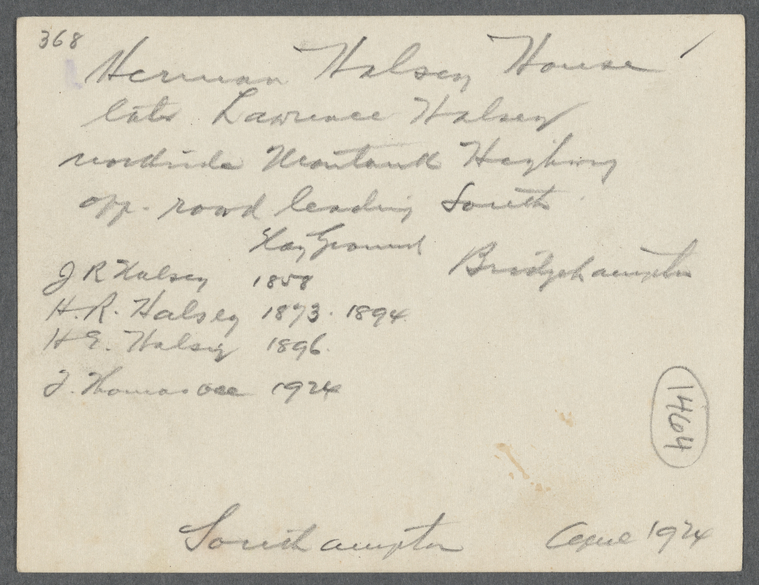 368
Herman Halsey House
late Lawrence Halsey
northside Montauk Highway
opp. road leading South
Hay Ground
Bridgehampton
J R Halsey 1858
H. R. Halsey 1873 - 1894
H E. Halsey 1896
J. Thomas occ 1924
1464
Southampton
1924